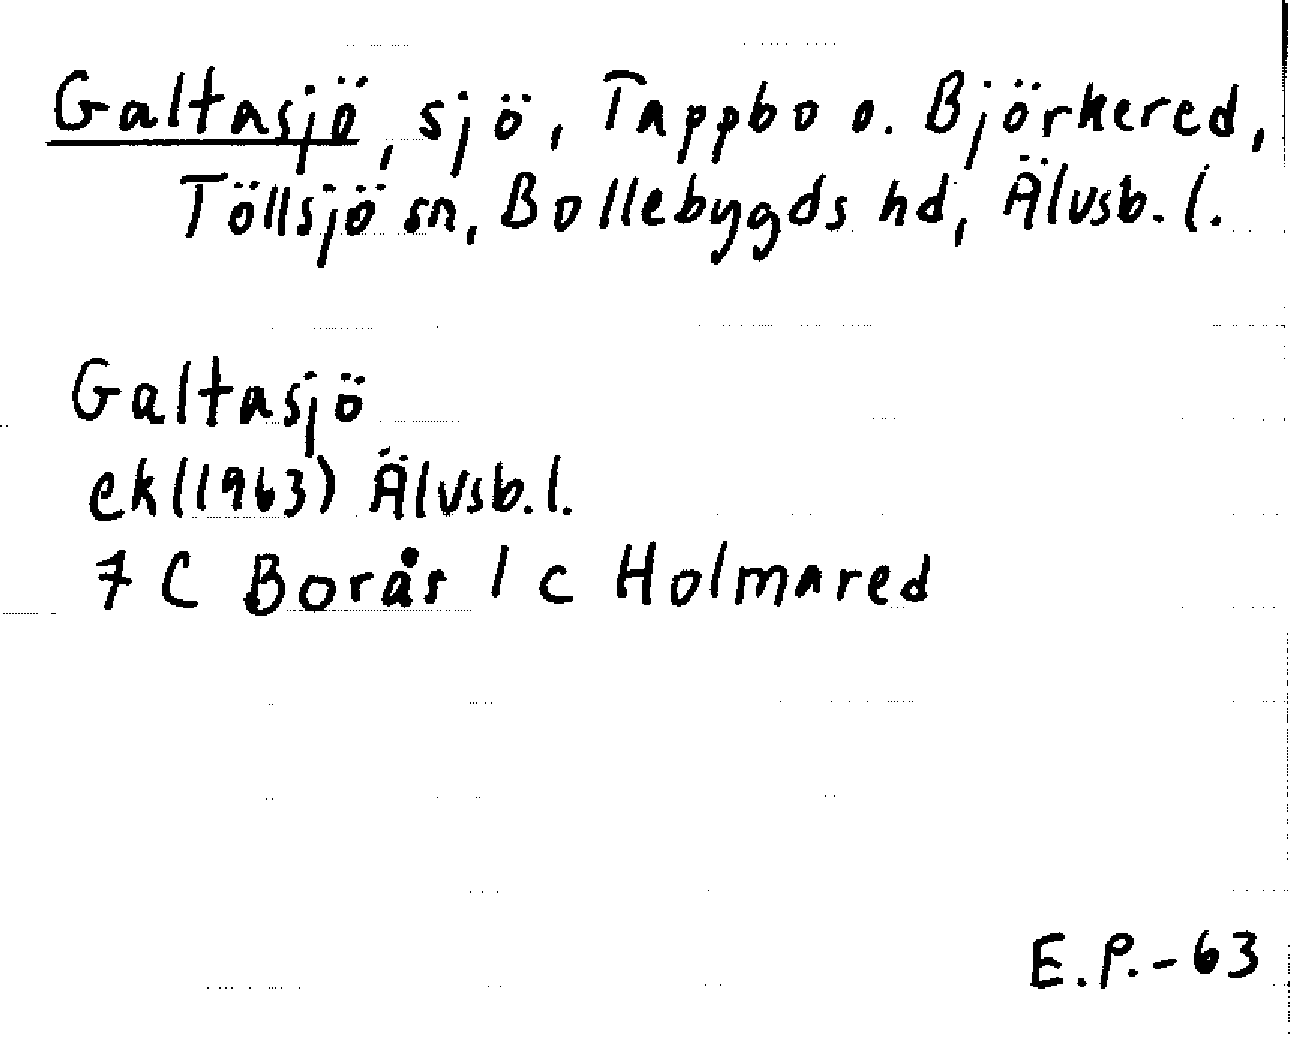 Galtasjö, sjö, Tappbo o. Björkered,
Töllsjö sn, Bollebygds hd, Älvsb. l.
Galtasjö
ek (1963) Älvsb. l.
7 C Borås 1 c Holmared
E.P.-63